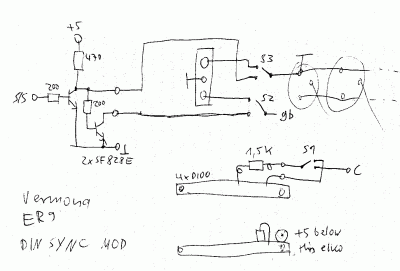 +5
470
S3
200
S/S
200
S2
gb
2xSF828E
1,5K
S9
4xD100
C
Vermona
ER9
DIN SYNC MOD
+5 below
this elco